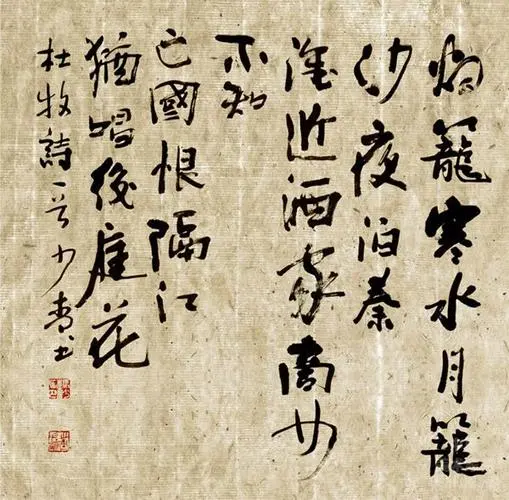 烟籠寒水月籠
沙夜泊秦
淮近酒家商女
不知
亡國恨隔江
猶唱後庭花
杜牧詩一少书